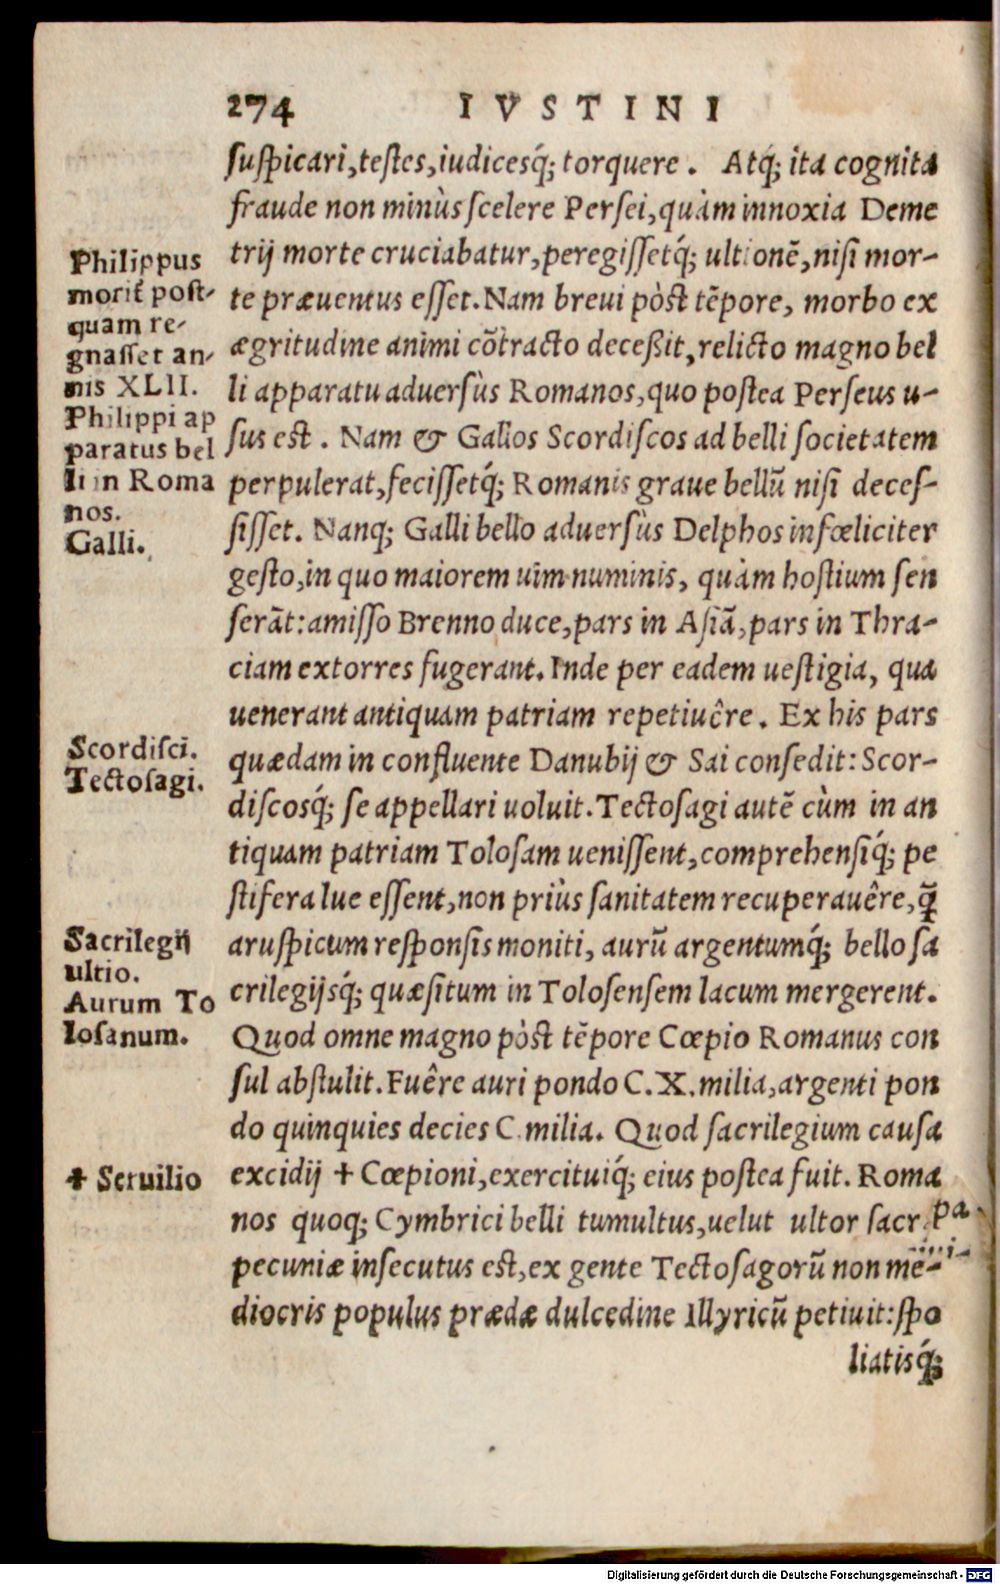 274 IVSTINI
suspicari, testes, iudicesq́; torquere. Atq́; ita cognita
fraude non minùs scelere Persei, quàm innoxia Deme
trij morte cruciabatur, peregissetq́; ultionẽ, nisi mor-
te præuentus esset. Nam breui pòst tẽpore, morbo ex
ægritudine animi cõtracto deceßit, relicto magno bel
li apparatu aduersùs Romanos, quo postea Perseus u-
sus est. Nam & Gallos Scordiscos ad belli societatem
perpulerat, fecissetq́; Romanis graue bellũ nisi deces-
sisset. Nanq; Galli bello aduersùs Delphos infœliciter
gesto, in quo maiorem uim numinis, quàm hostium sen
serãt: amisso Brenno duce, pars in Asiã, pars in Thra-
ciam extorres fugerant. Inde per eadem uestigia, qua
uenerant antiquam patriam repetiuêre. Ex his pars
quædam in confluente Danubij & Sai consedit: Scor-
discosq́; se appellari uoluit. Tectosagi autẽ cùm in an
tiquam patriam Tolosam uenissent, comprehensiq́; pe
stifera lue essent, non priùs sanitatem recuperauêre, q̃
aruspicum responsis moniti, aurũ argentumq́; bello sa
crilegijsq́; quæsitum in Tolosensem lacum mergerent.
Quod omne magno pòst tẽpore Cœpio Romanus con
sul abstulit. Fuêre auri pondo C.X. milia, argenti pon
do quinquies decies C. milia. Quod sacrilegium causa
excidij + Cœpioni, exercituiq́; eius postea fuit. Roma
nos quoq; Cymbrici belli tumultus, uelut ultor sacr pa
pecuniæ insecutus est, ex gente Tectosagorũ non me-
diocris populus prædæ dulcedine Illyricũ petiuit: spo
liatisq́;
Philippus
morit́ post-
quam re-
gnasset an-
nis XLII.
Philippi ap
paratus bel
li in Roma
nos.
Galli.
Scordisci.
Tectosagi.
Sacrilegij
ultio.
Aurum To
losanum.
+ Seruilio
Digitalisierung gefördert durch die Deutsche Forschungsgemeinschaft - DFG